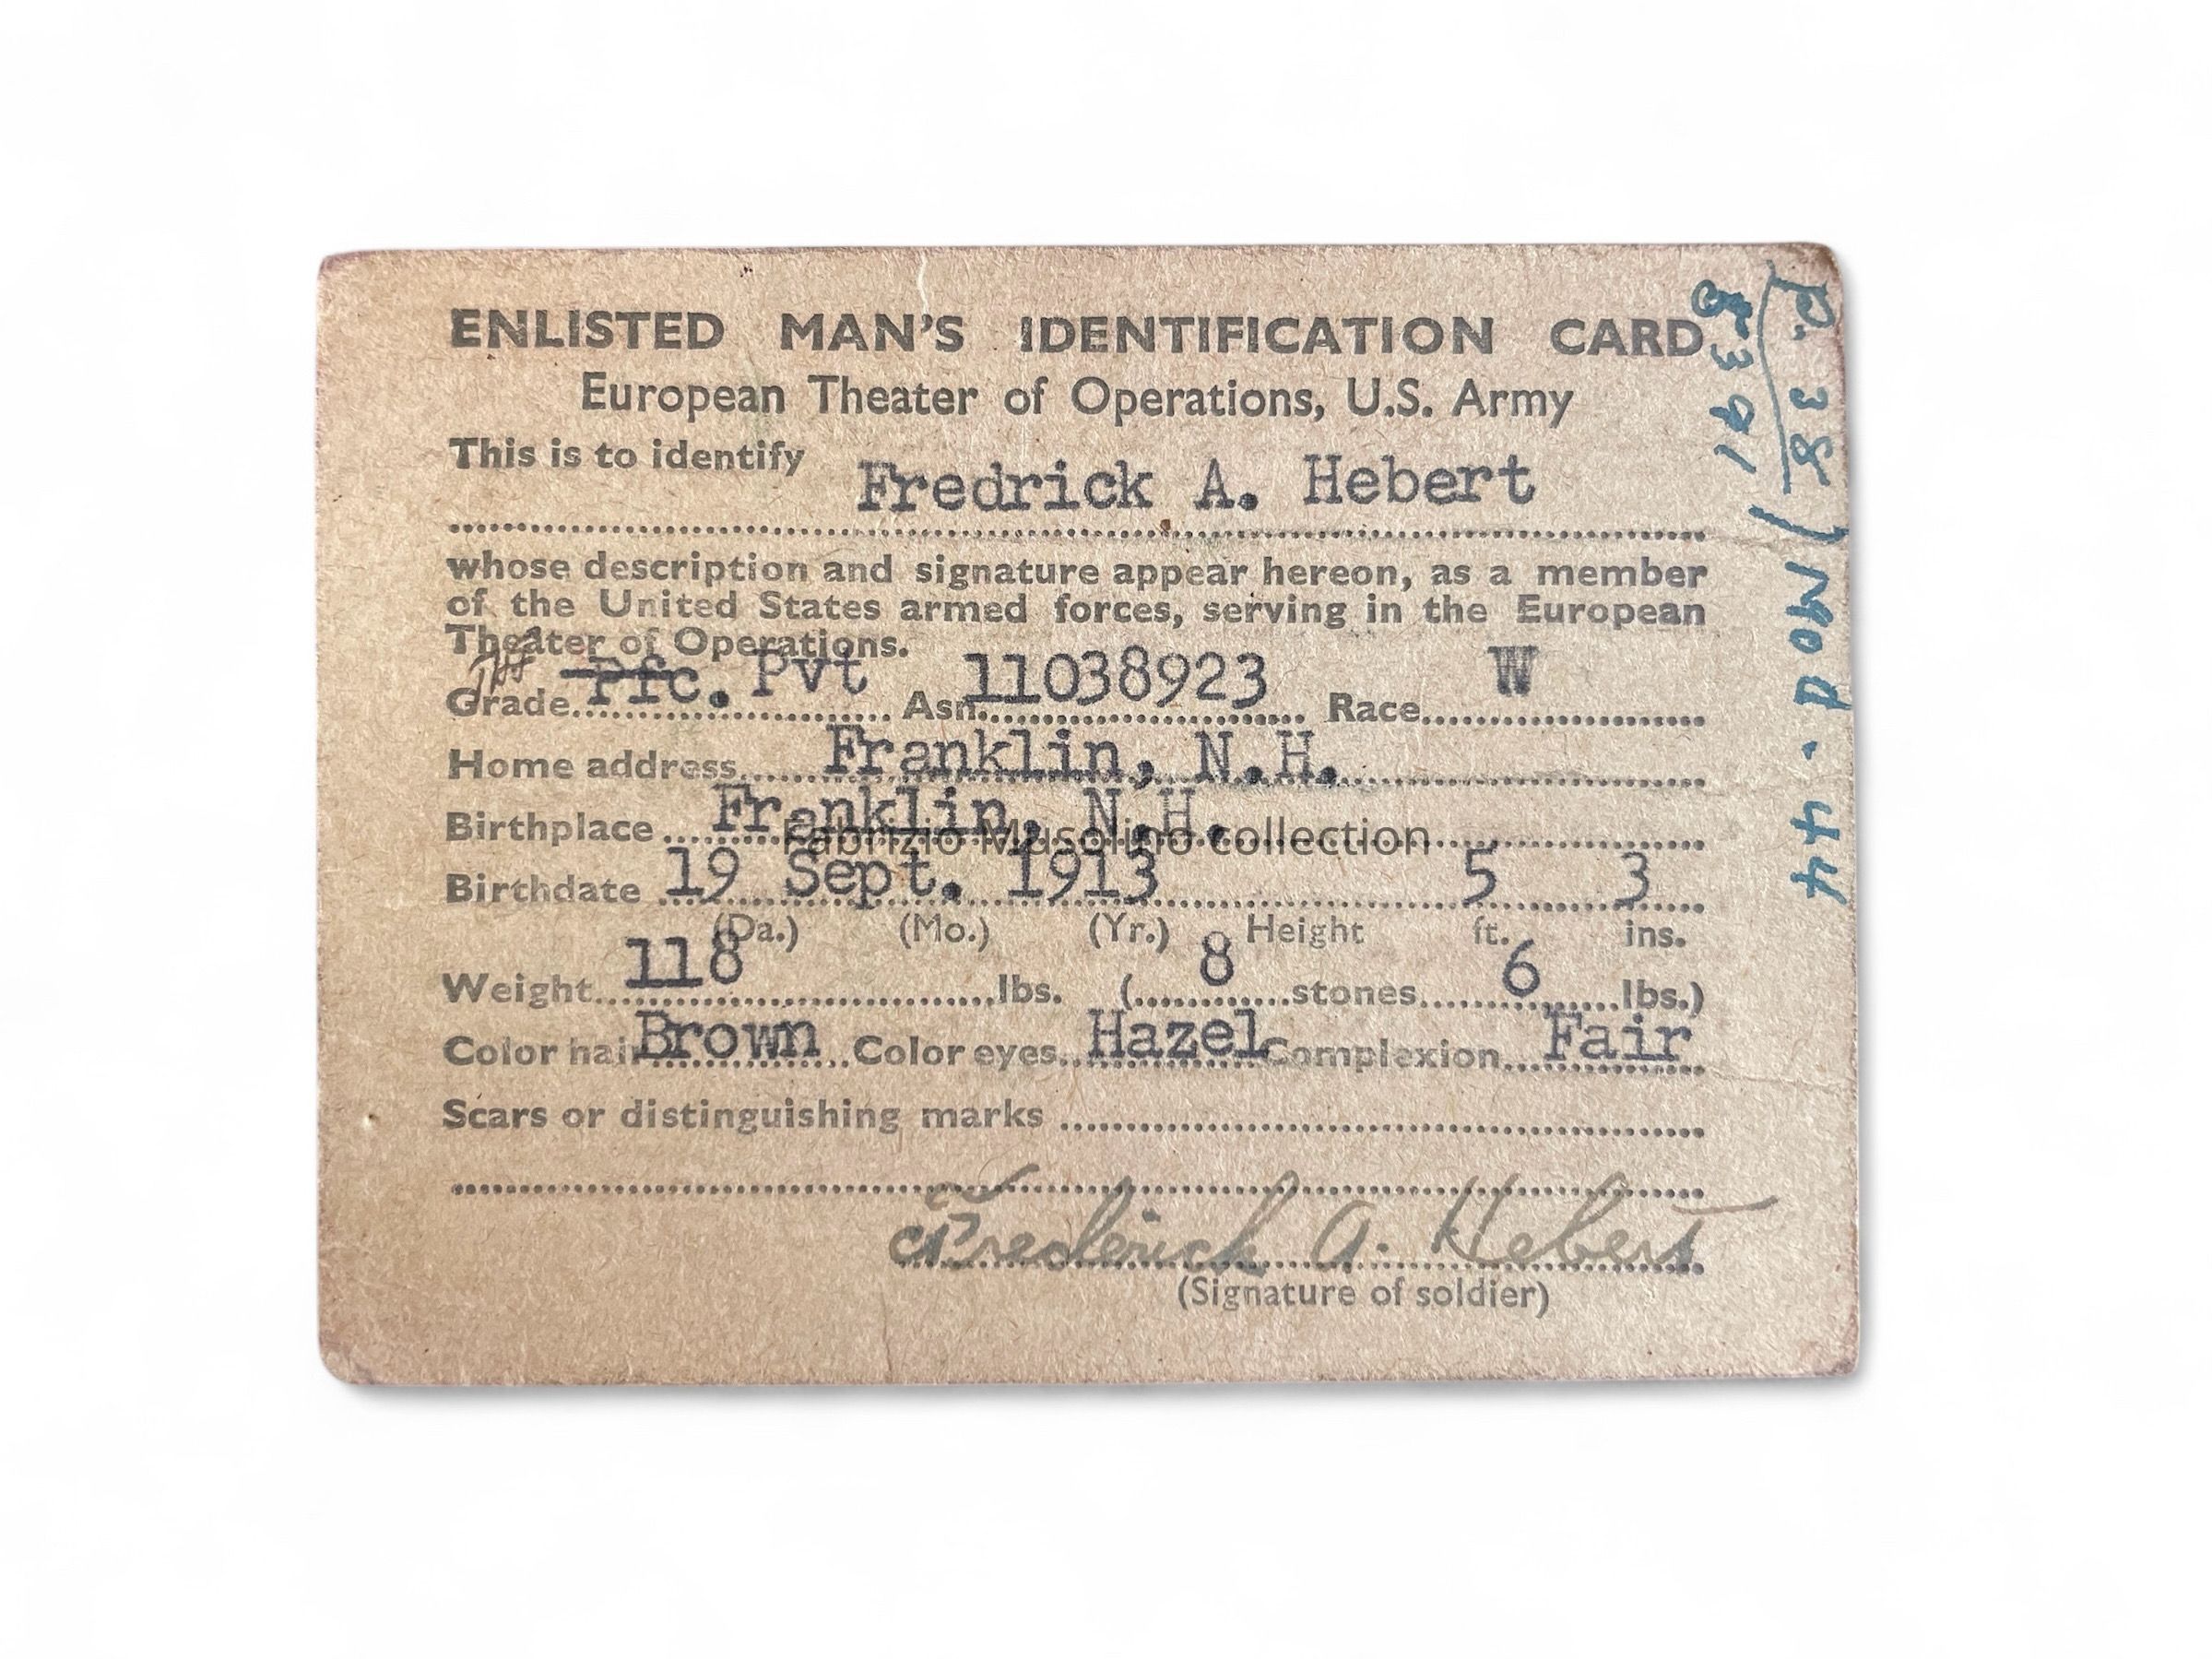 ENLISTED MAN'S IDENTIFICATION CARD
European Theater of Operations, U.S. Army
This is to identify
Fredrick A. Hebert
whose description and signature appear hereon, as a member
of the United States armed forces, serving in the European
Theater of Operations.
Grade Pfc. Pvt Asn. 11038923 Race W
Home address Franklin, N.H.
Birthplace Franklin, N.H.
Fabrizio Musolino collection
Birthdate 19 Sept. 1913 5 3
(Da.) (Mo.) (Yr.) Height ft. ins.
Weight 118 lbs. (8 stones 6 lbs.)
Color hair Brown Color eyes Hazel Complexion Fair
Scars or distinguishing marks
Frederick A. Hebert
(Signature of soldier)
P. 38) Mod. 44